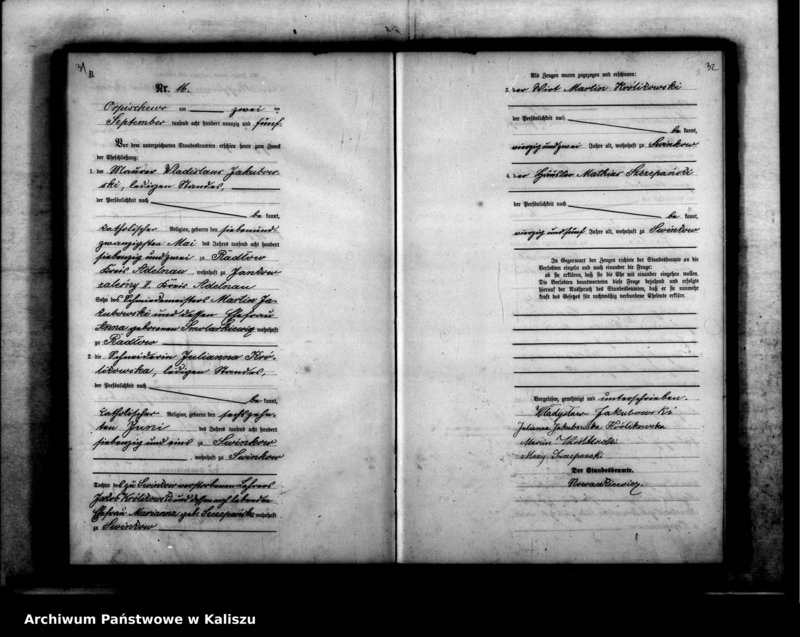 31
B.
Nr. 16.
am zwei ten
September tausend acht hundert neunzig und fünf.
Vor dem unterzeichneten Standesbeamten erschien heute zum Zweck
der Eheschließung:
1. der Maurer Vladislaus Jakubow-
ski, ledigen Standes,
der Persönlichkeit nach
be kannt,
katholischer Religion, geboren den siebenund-
zwanzigsten Mai des Jahres tausend acht hundert
siebenzig und zwei zu Radlow
Kreis Adelnau, wohnhaft zu Jankow
zalesny II. Kreis Adelnau
Sohn des Schmiedemeisters Martin Ja-
kubowski und dessen Ehefrau
Anna geborenen Smolarkiewicz wohnhaft
zu Radlow
2. die Schneiderin Julianna Kró-
likowska, ledigen Standes,
der Persönlichkeit nach
be kannt,
katholischer Religion, geboren den sechszehn-
ten Juni des Jahres tausend acht hundert
siebenzig und eins zu Swinkow
, wohnhaft zu Swinkow
Tochter des zu Swinkow verstorbenen Lehrers
Jakob Królikowski und dessen noch lebenden
Ehefrau Marianna geb. Szczepańska wohnhaft
zu Swinkow
32
Als Zeugen waren zugezogen und erschienen:
3. der Wirt Martin Królikowski
der Persönlichkeit nach
be kannt,
vierzig und zwei Jahre alt, wohnhaft zu Swinkow
4. der Häusler Mathias Szczepański
der Persönlichkeit nach
be kannt,
vierzig und fünf Jahre alt, wohnhaft zu Swinkow
In Gegenwart der Zeugen richtete der Standesbeamte an die
Verlobten einzeln und nach einander die Frage:
ob sie erklären, daß sie die Ehe mit einander eingehen wollen.
Die Verlobten beantworteten diese Frage bejahend und erfolgte
hierauf der Ausspruch des Standesbeamten, daß er sie nunmehr
kraft des Gesetzes für rechtmäßig verbundene Eheleute erkläre.
Vorgelesen, genehmigt und unterschrieben.
Wladyslaw Jakubowski
Julianna Jakubowska Królikowska
Szczepanski
Der Standesbeamte.
Nowackiewicz.
Archiwum Państwowe w Kaliszu